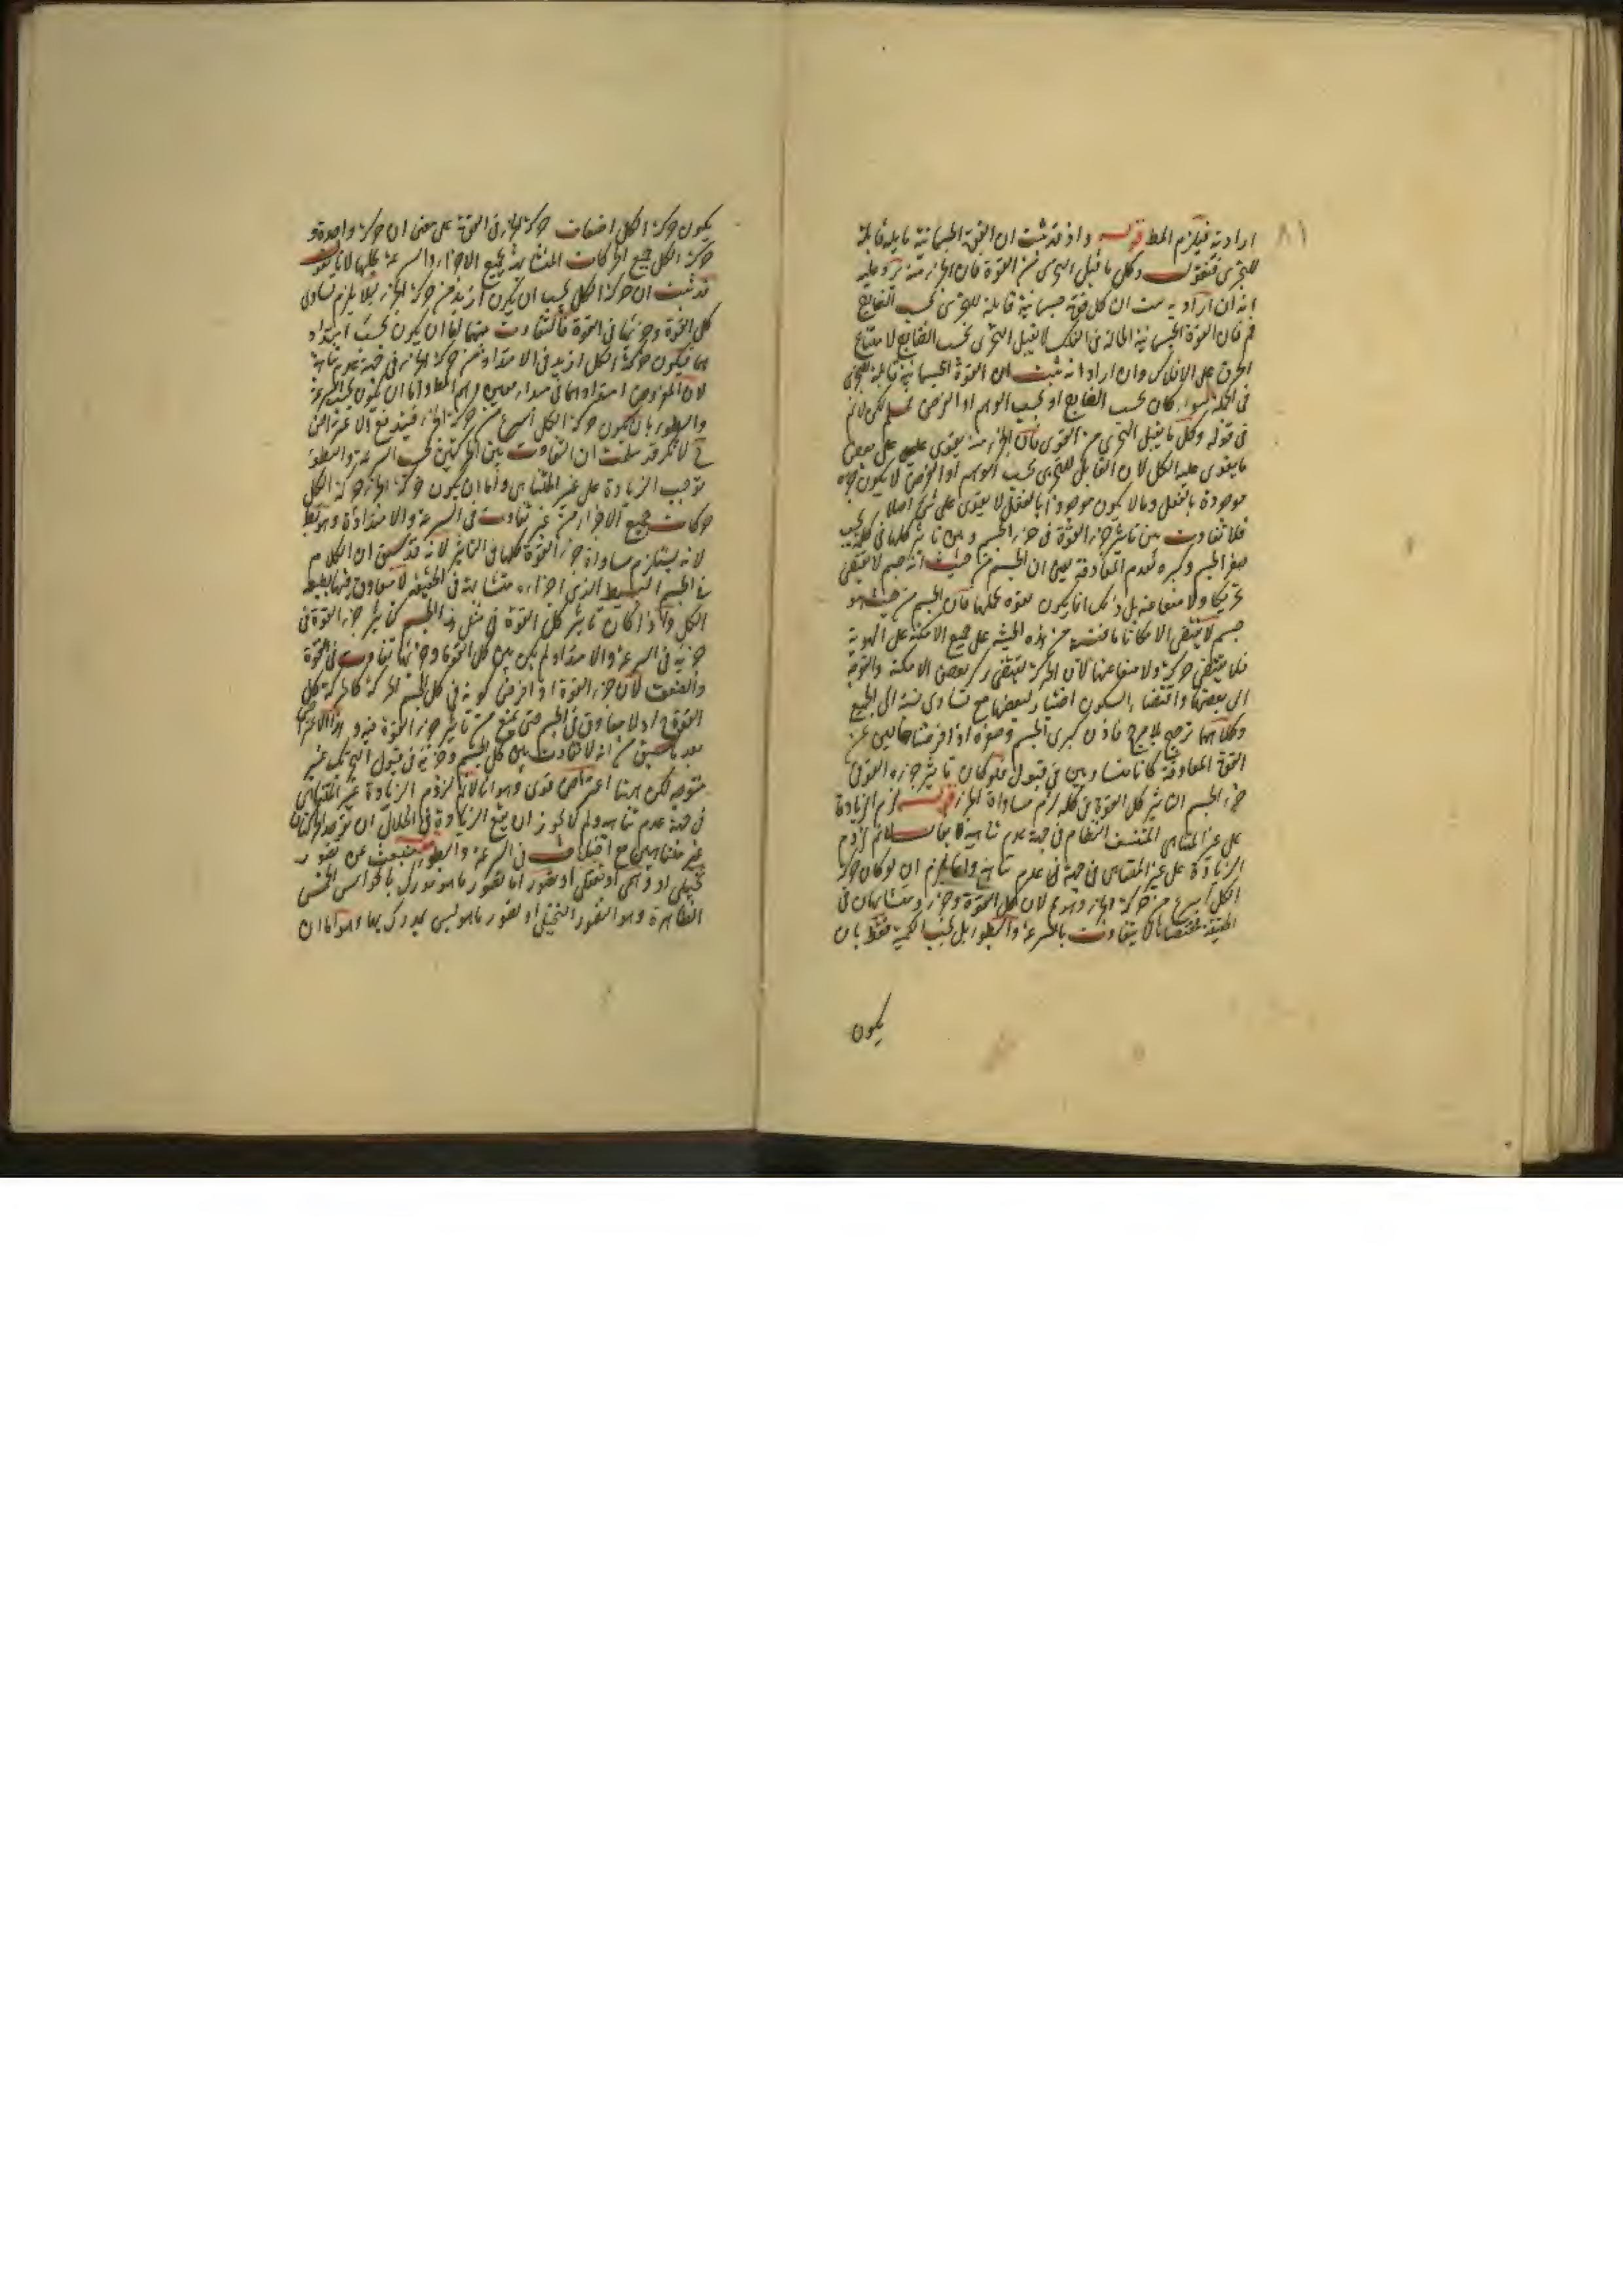 ٨١
ارادية فيلزم المط قوله واذ قد ثبت ان القوة الجسمانية قابلة
للتجزى فنقول وكل ما يقبل التجزى من القوة فان الجزء منه يرد عليه
انه ان اراد به ان كل قوة جسمانية قابلة للتجزى بحسب القطع
فان القوة الجسمانية الحالة فى الفلك لا يقبل التجزى بحسب القطع لامتناع
الخرق على الافلاك وان اراد انه ثبت ان القوة الجسمانية قابلة للتجزى
فى الجملة سواء كان بحسب القطع او بحسب الوهم او الفرض فمسلم لكن لا نم
فى قوله وكل ما يقبل التجزى من القوى فان الجزء منه يقوى على بعض
ما يقوى عليه الكل لان القابل للتجزى بحسب الوهم او الفرض لا يكون جزءه
موجودة بالفعل وما لا يكون موجودا بالفعل لا يقوى على شئ اصلا
فلا تفاوت بين تاثير جزء القوة فى جزء الجسم وبين تاثير كلها فى كله بحسب
صغر الجسم وكبره لعدم المعاوقة يعنى ان الجسم من حيث انه جسم لا يقتضى
تحريكا ولا منعا عنه بل ذلك انما يكون بقوة تحلها فان الجسم من حيث هو
جسم لا يقتضى الا مكانا ما من هذه الحيثية على جميع الامكنة على السوية
فلا يقتضى حركة ولا منعا عنها لان الحركة تقتضى ترك بعض الامكنة والتوجه
الى بعضها واقتضاء السكون اختيار لبعضها مع تساوى نسبته الى الجميع
وكلاهما ترجيح بلا مرجح فاذن كبرى الجسم وصغره اذا فرضنا خاليين عن
القوة المعاوقة كانا متساويين فى قبول فلو كان تاثير جزء القوى
جزء الجسم التاثير كل القوة فى كله لزم مساواة الجزء قوله لزم الزيادة
على غير المتناهى المتسق النظام فى جهة عدم تناهيه لا نم لزوم
الزيادة على غير المتناهى فى جهة عدم تناهيه وانما يلزم ان لو كان حركة
الكل اسرع من حركة الجزء وهو لان كل القوة وجزءه متشابهان فى
الحقيقة بالسرعة والبطوء بل بحسب الكمية فقط بان
يكون
يكون حركة الكل اضعاف حركة الجزء فى القوة على معنى ان حركة واحدة و
حركة الكل جميع الحركات المتشابهة لجميع الاجزاء والسرعة بحالها لانا نقول
قد ثبت ان حركة الكل يجب ان يكون ازيد من حركة الجزء لئلا يلزم تساوى
كل القوة وجزئها فى القوة فالتفاوت بينهما اما ان يكون بحسب امتداد
هما فيكون حركة الكل ازيد فى الامتداد من حركة الجزء فى جهة غير متناهية
لان المفروض امتدادهما فى مبداء معين وهم المط واما ان يكون بحسب السرعة
والبطوء بان يكون حركة الكل اسرع من حركة الجزء فيندفع الاعتراض
ح لانكم قد سلمت ان التفاوت بين الحركتين بحسب السرعة والبطوء
توجب الزيادة على غير المتناهى واما ان يكون حركة الجزء حركة الكل
حركات جميع الاجزاء من غير تفاوت فى السرعة والامتداد وهو بط
لانه يستلزم مساواة جزء القوة كلها فى التاثير لانه قد سبق ان الكلام
فى الجسم البسيط الذى اجزاءه متشابهة فى الحقيقة لا معاوق فيها بطبعه
الكل واذا كان تاثير كل القوة فى مثل هذا الجسم كتاثير جزء القوة فى
جزئه فى السرعة والامتداد لم يكن بين كل القوة وجزئها تفاوت فى القوة
والضعف لان جزء القوة اذا فرض كونه فى كل الجسم لحركه كالحركة كل
القوة ح اذ لا معاوق فى الجسم حتى يمنع من تاثير جزء القوة فيه و هذا الاعتراض
بعد ما سبق من انه لا تفاوت بين كل الجسم وجزئه فى قبول التحريك غير
متوجه لكن ههنا اعتراض قوى وهو انا لا نم لزوم الزيادة غير المتناهى
فى جهة عدم تناهيه ولم لا يجوز ان يقع الزيادة فى الخلال ان توجد الحركتان
غير متناهيين مع اختلاف فى السرعة والبطوء منبعث عن تصور
تخيلى او وهمى او تعقلى او تصور اما تصور ما هو مدرك بالحواس الخمس
الظاهرة وهو التصور التخيلى او تصور ما هو ليس بمدرك بها وهو اما ان